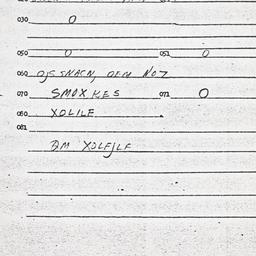 030 O
050 O 051 O
060 OJSSNACN, OEN NOT
070 SMOXKES 071 O
080 XOLILE
081
DM XOLFJLF